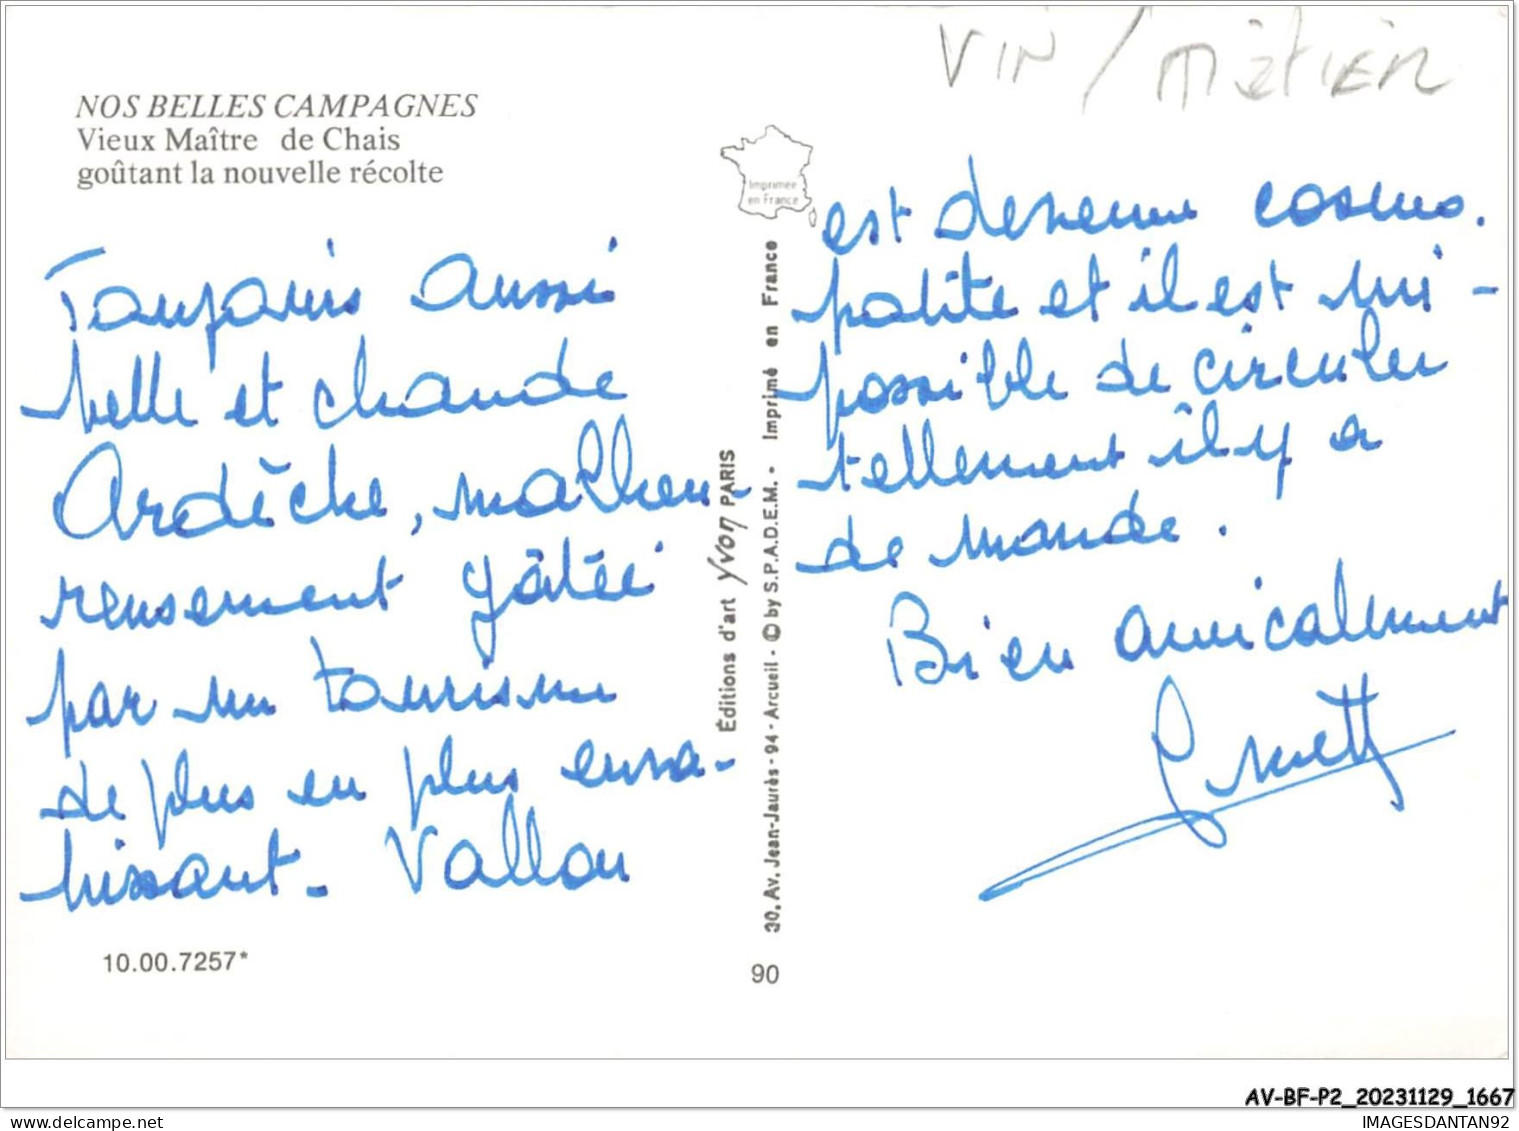 VIN / METIER
NOS BELLES CAMPAGNES
Vieux Maître de Chais
goûtant la nouvelle récolte
Toujours aussi
belle et chaude
Ardèche, malheu-
reusement gâtée
par un tourisme
de plus en plus enva-
hissant - Vallon
10.00.7257*
Imprimée
en France
Éditions d'art Yvon PARIS
30, Av. Jean-Jaurès - 94 - Arcueil - © by S.P.A.D.E.M. - Imprimé en France
90
est devenu cosmo.
polite et il est im -
possible de circuler
tellement il y a
de monde.
Bien amicalement
AV-BF-P2_20231129_1667
IMAGESDANTAN92